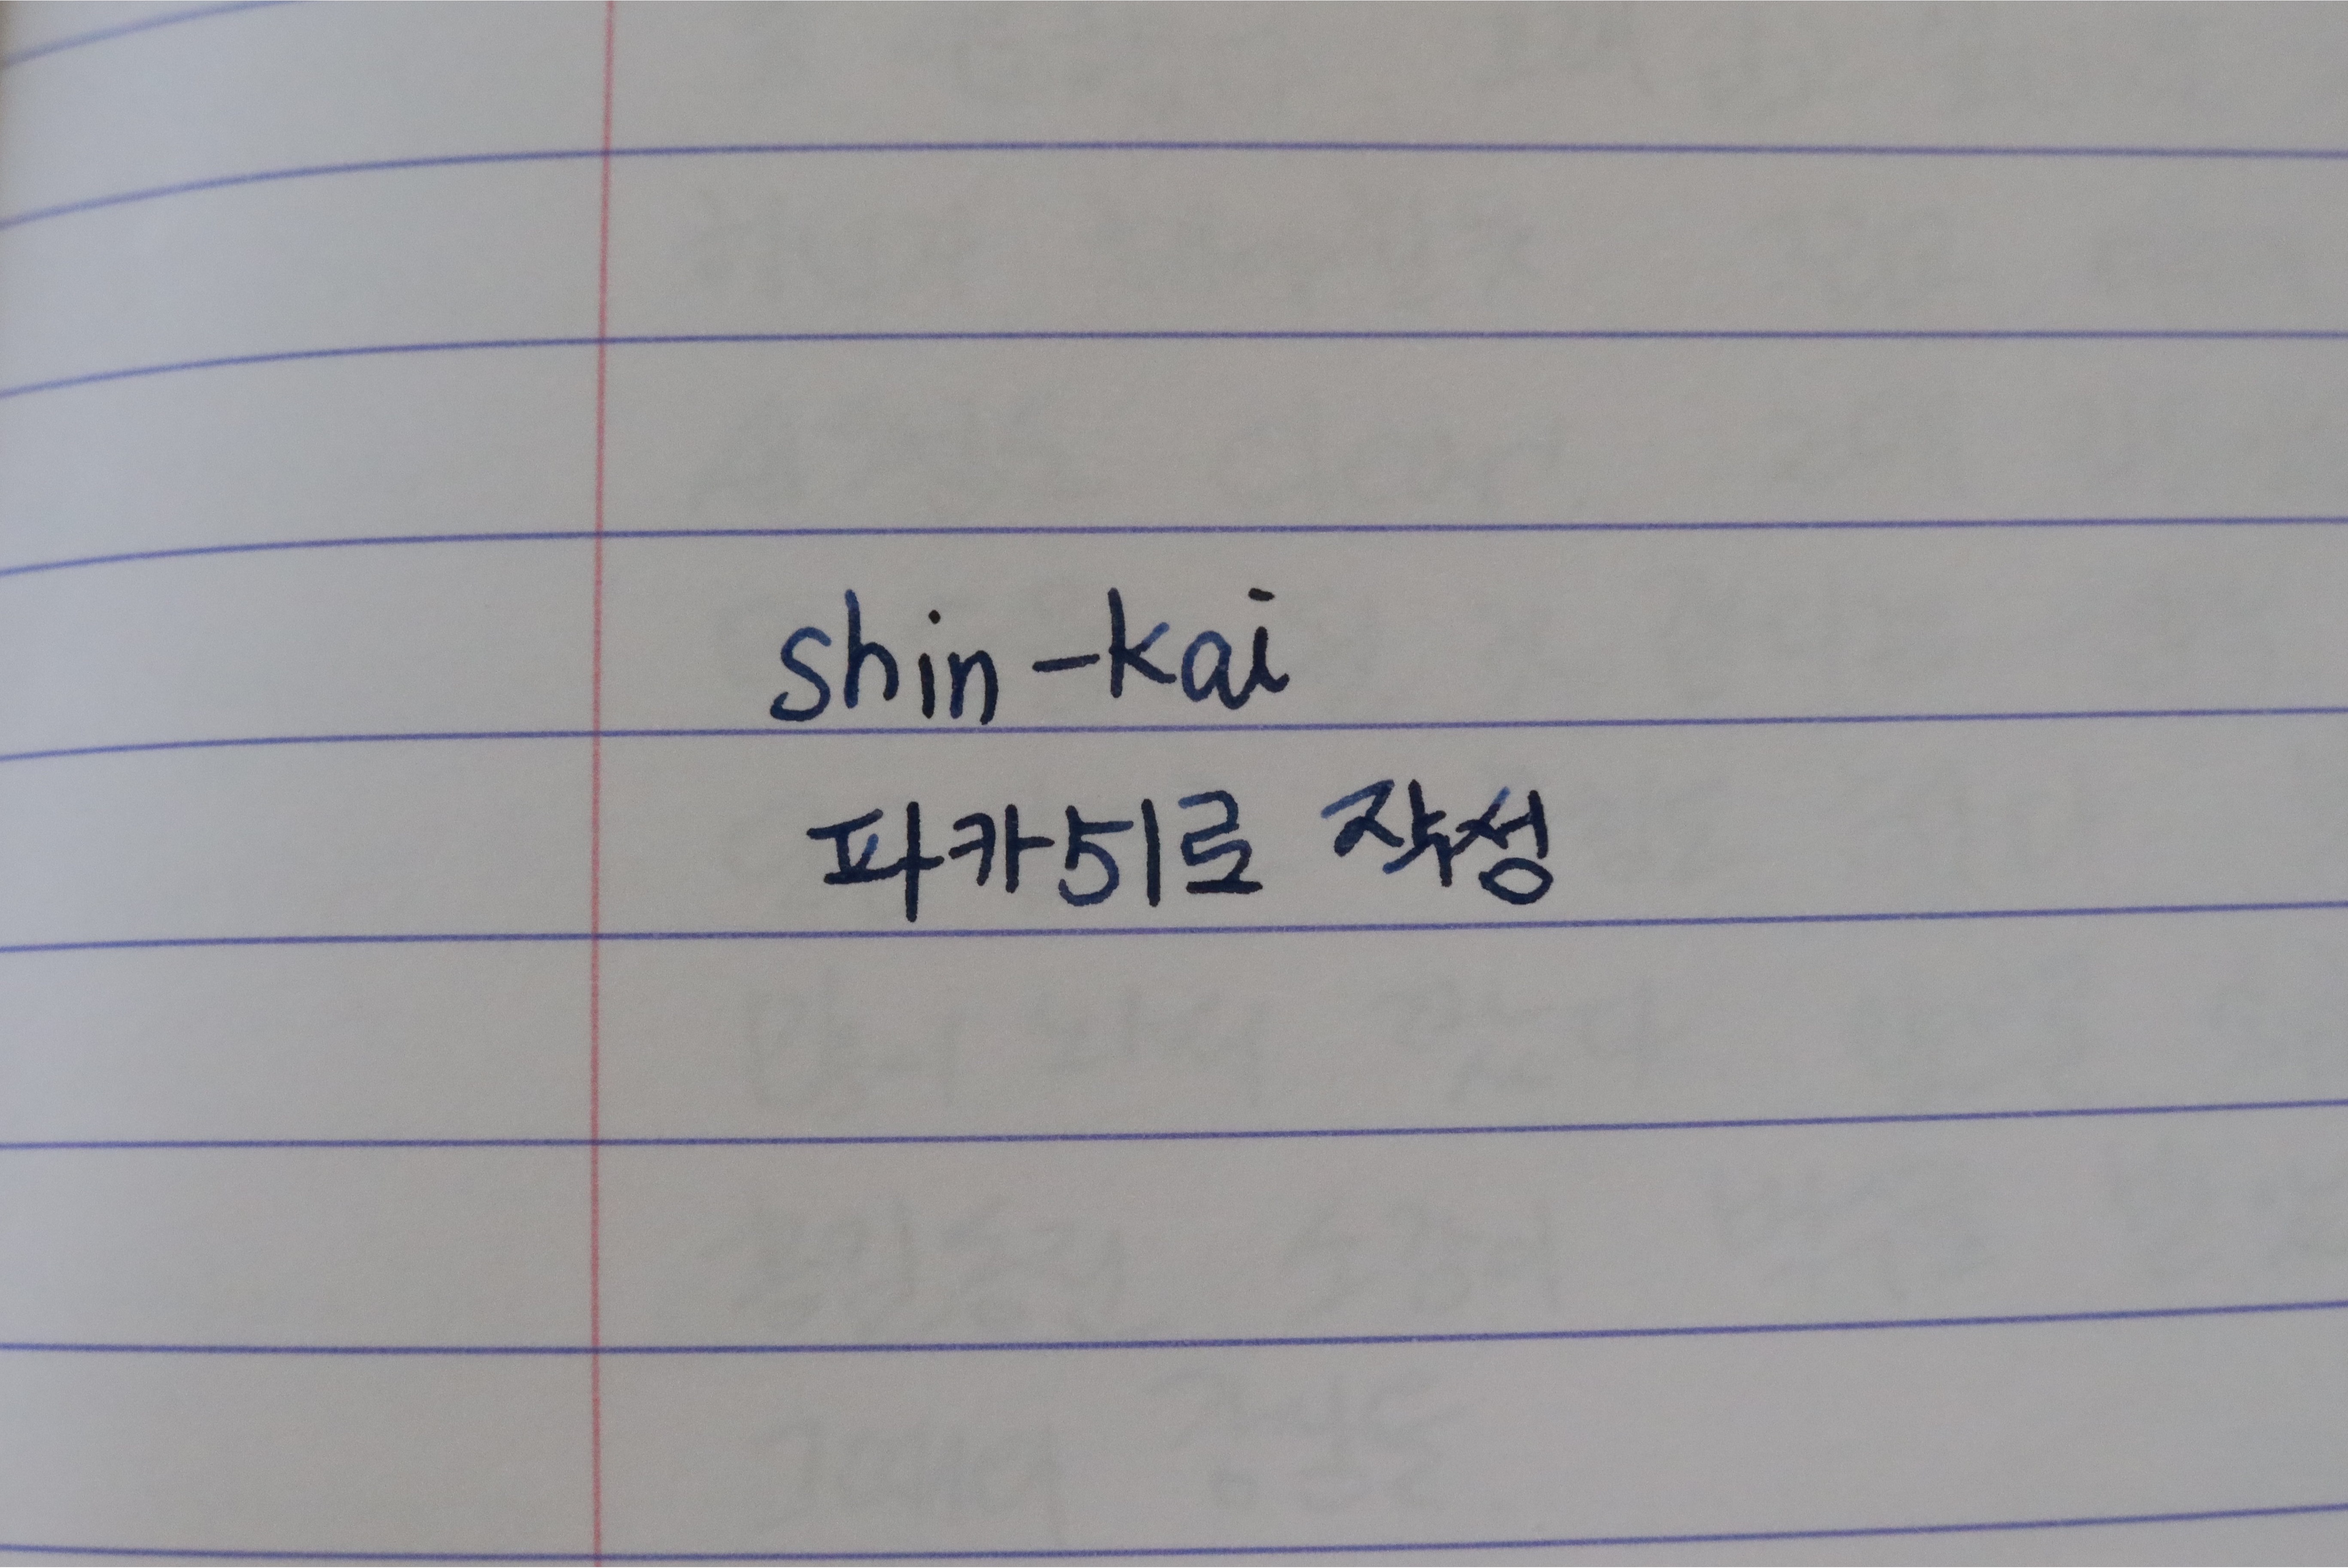 shin-kai
파카51로 작성